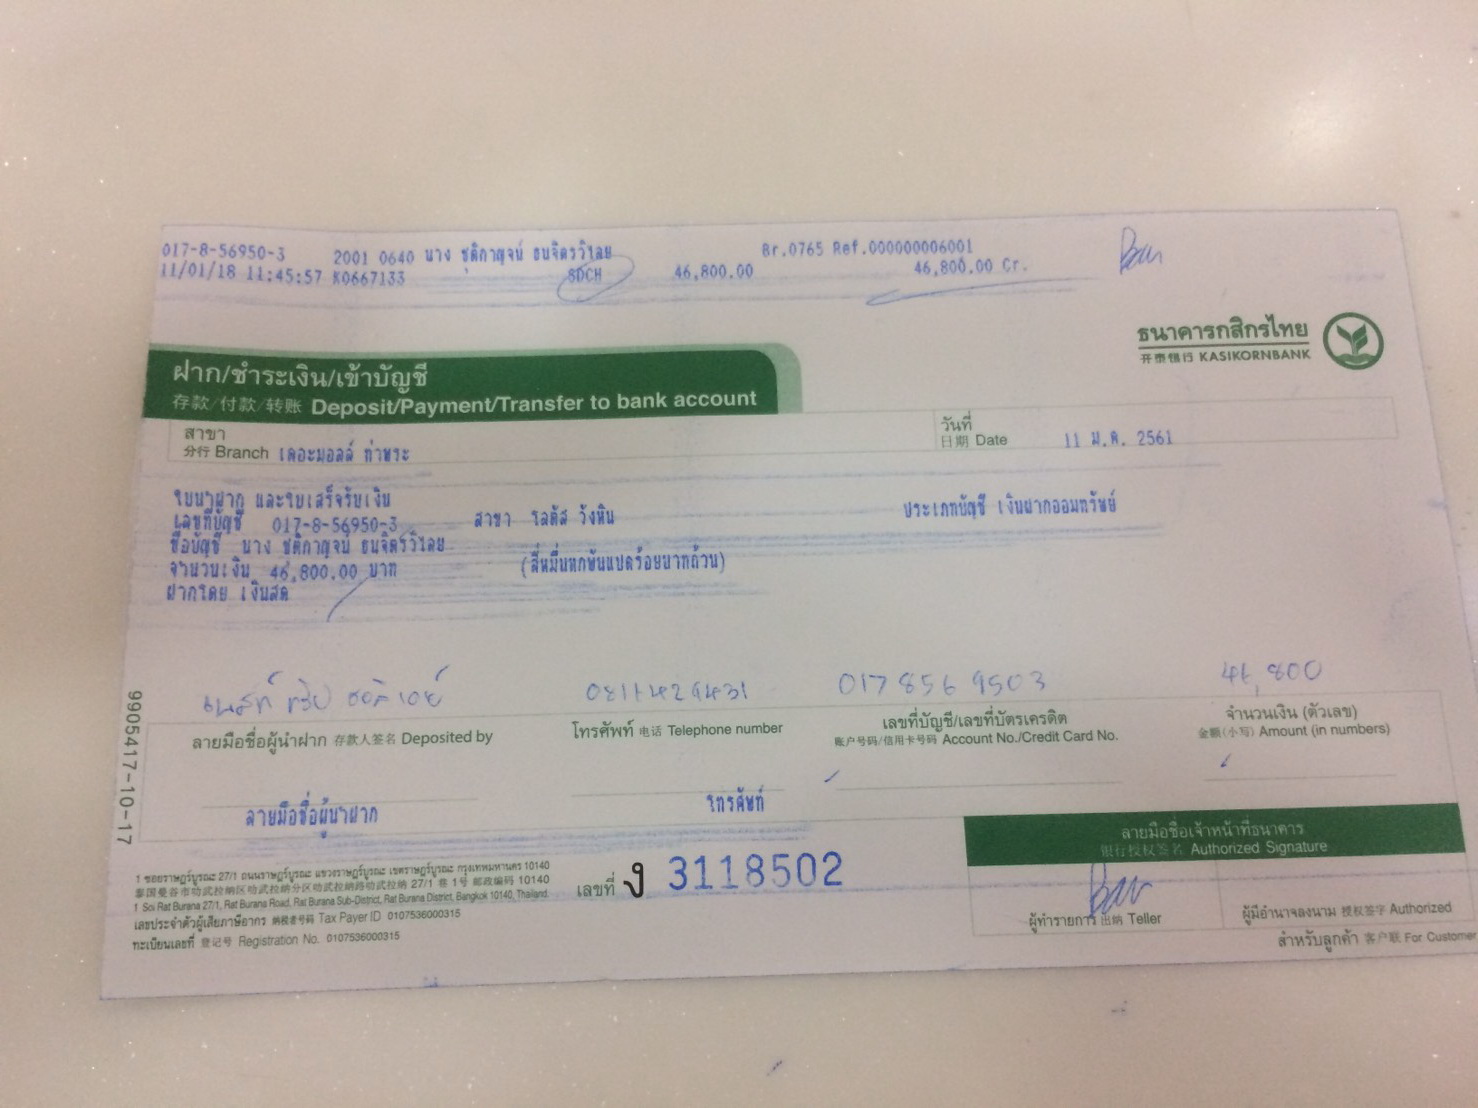 017-8-56950-3 2001 0640 นาง ชุติกาญจน์ ธนจิตรวิไลย Br.0765 Ref.000000006001
11/01/18 11:45:57 K0667133 SDCH 46,800.00 46,800.00 Cr.
ธนาคารกสิกรไทย
开泰银行 KASIKORNBANK
ฝาก/ชำระเงิน/เข้าบัญชี
存款/付款/转账 Deposit/Payment/Transfer to bank account
สาขา
分行 Branch เดอะมอลล์ ท่าพระ
วันที่
日期 Date 11 ม.ค. 2561
ใบนำฝาก และใบเสร็จรับเงิน
เลขที่บัญชี 017-8-56950-3 สาขา โลตัส วังหิน ประเภทบัญชี เงินฝากออมทรัพย์
ชื่อบัญชี นาง ชุติกาญจน์ ธนจิตรวิไลย
จำนวนเงิน 46,800.00 บาท (สี่หมื่นหกพันแปดร้อยบาทถ้วน)
ฝากโดย เงินสด
017856 9503 46,800
ลายมือชื่อผู้นำฝาก 存款人签名 Deposited by
โทรศัพท์ 电话 Telephone number
เลขที่บัญชี/เลขที่บัตรเครดิต
账户号码/信用卡号码 Account No./Credit Card No.
จำนวนเงิน (ตัวเลข)
金额(小写) Amount (in numbers)
ลายมือชื่อผู้นำฝาก โทรศัพท์
9905417-10-17
1 ซอยราษฎร์บูรณะ 27/1 ถนนราษฎร์บูรณะ แขวงราษฎร์บูรณะ เขตราษฎร์บูรณะ กรุงเทพมหานคร 10140
泰国曼谷市叻武拉纳区叻武拉纳分区叻武拉纳路叻武拉纳 27/1 巷 1号 邮政编码 10140
1 Soi Rat Burana 27/1, Rat Burana Road, Rat Burana Sub-District, Rat Burana District, Bangkok 10140, Thailand.
เลขประจำตัวผู้เสียภาษีอากร 纳税者号码 Tax Payer ID 0107536000315
ทะเบียนเลขที่ 登记号 Registration No. 0107536000315
เลขที่ ง 3118502
ลายมือชื่อเจ้าหน้าที่ธนาคาร
银行授权签名 Authorized Signature
ผู้ทำรายการ 出纳 Teller
ผู้มีอำนาจลงนาม 授权签字 Authorized
สำหรับลูกค้า 客户联 For Customer